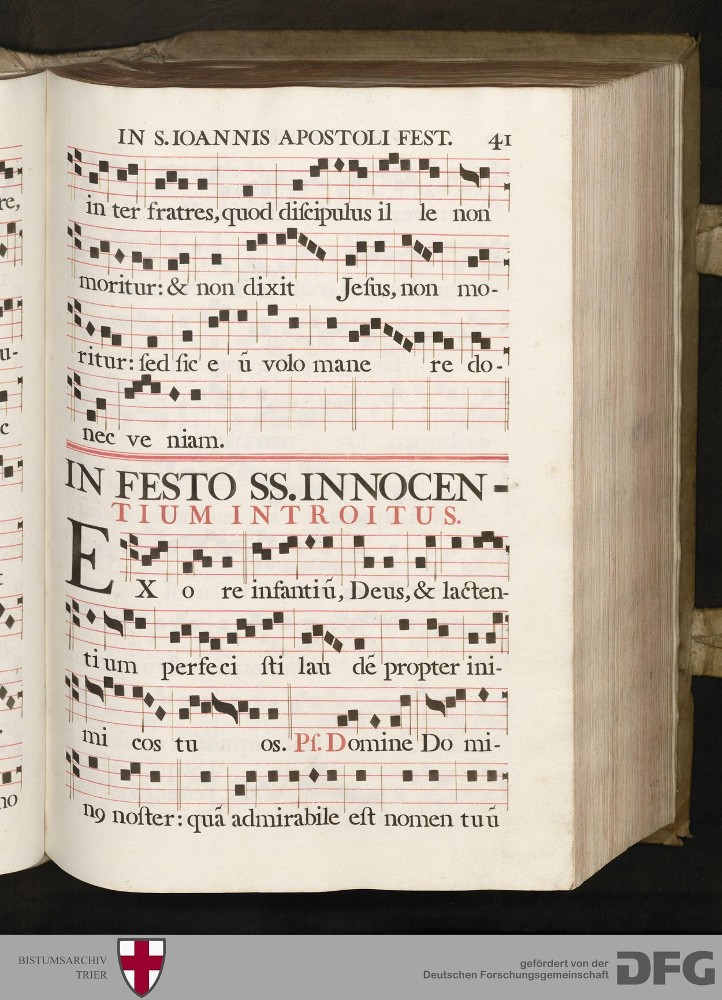 IN S. IOANNIS APOSTOLI FEST. 41
in ter fratres, quod diſcipulus il le non
moritur: & non dixit Jeſus, non mo-
ritur: ſed ſic e ũ volo mane re do-
nec ve niam.
IN FESTO SS. INNOCEN-
TIUM INTROITUS.
EX o re infantiũ, Deus, & lacten-
ti um perfeci ſti lau dẽ propter ini-
mi cos tu os. Pſ. Domine Do mi-
nꝰ noſter: quã admirabile eſt nomen tuũ
re,
u-
c
no
BISTUMSARCHIV
TRIER
gefördert von der
Deutschen Forschungsgemeinschaft
DFG